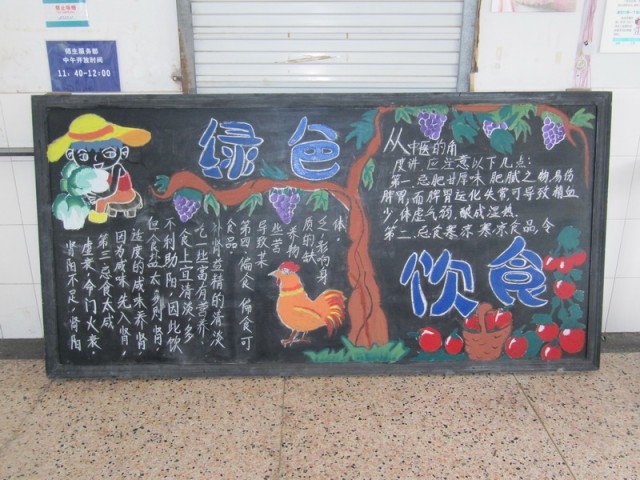 师生服务部
中午开放时间
11:40-12:00
绿色
饮食
从中医的角
度讲,应注意以下几点:
第一.忌肥甘厚味.肥腻之物,易伤
脾胃,而脾胃运化失常,可导致精血
少,体虚气弱,酿成湿热.
第二.忌食寒凉.寒凉食品,令
肾阳不足,肾阳
虚衰,命门火衰.
第三:忌食太咸
因为咸味先入肾,
适度的咸味养肾,
但食盐太多则肾
不利助阳,因此饮
食上宜清淡,多
吃一些富有营养,
补肾益精的清淡
食品.
第四.偏食 偏食可
导致某
些营
养物
质的缺
乏,影响身
体.